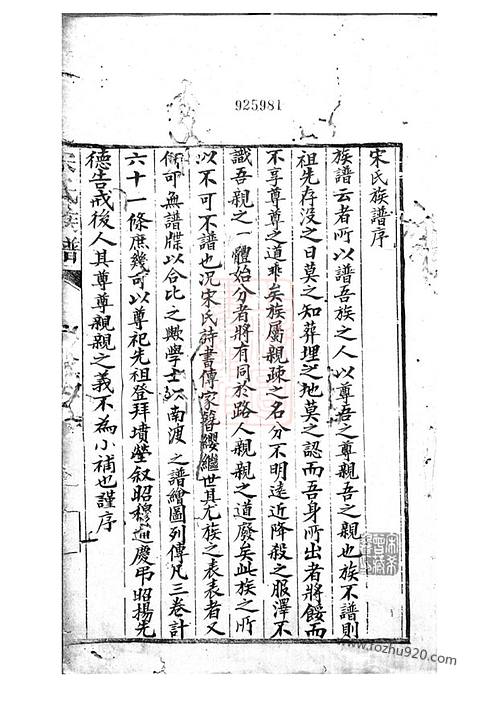 925981
宋氏族譜序
族譜云者所以譜吾族之人以尊吾之尊親吾之親也族不譜則
祖先存沒之日莫之知葬埋之地莫之認而吾身所出者將餒而
不享尊尊之道乖矣族屬親疎之名分不明遠近降殺之服澤不
識吾親之一體始分者將有同於路人親親之道廢矣此族之所
以不可不譜也況宋氏詩書傳家簪纓繼世其尤族之表表者又
可無譜牒以合比之歟學士 南渡之譜繪圖列傳凡三卷計
六十一條庶幾可以尊祀先祖登拜墳塋敘昭穆 慶弔昭揚先
德告戒後人其尊尊親親之義不為小補也謹序
氏族譜
www.fozhu920.com